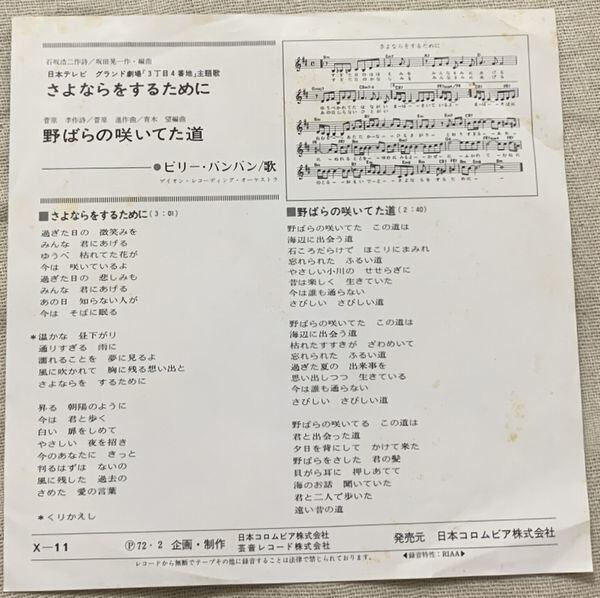 石坂浩二作詩／坂田晃一作・編曲
日本テレビ　グランド劇場「3丁目4番地」主題歌
さよならをするために
菅原　孝作詩／菅原　進作曲／青木　望編曲
野ばらの咲いてた道
●ビリー・バンバン/歌
ザイオン・レコーディング・オーケストラ
さよならをするために
■さよならをするために(3:01)
過ぎた日の　微笑みを
みんな　君にあげる
ゆうべ　枯れてた花が
今は　咲いているよ
過ぎた日の　悲しみも
みんな　君にあげる
あの日　知らない人が
今は　そばに眠る
*温かな　昼下がり
通りすぎる　雨に
濡れることを　夢に見るよ
風に吹かれて　胸に残る想い出と
さよならを　するために
昇る　朝陽のように
今は　君と歩く
白い　扉をしめて
やさしい　夜を招き
今のあなたに　きっと
判るはずは　ないの
風に残した　過去の
さめた　愛の言葉
*くりかえし
■野ばらの咲いてた道(2:40)
野ばらの咲いてた　この道は
海辺に出会う道
石ころだらけで　ほこりにまみれ
忘れられた　ふるい道
やさしい小川の　せせらぎに
昔は楽しく　生きていた
今は誰も通らない
さびしい　さびしい道
野ばらの咲いてた　この道は
海辺に出会う道
枯れたすすきが　ざわめいて
忘れられた　ふるい道
過ぎた夏の　出来事を
思い出しつつ　生きている
今は誰も通らない
さびしい　さびしい道
野ばらの咲いてる　この道は
君と出会った道
夕日を背にして　かけて来た
野ばらをさした　君の髪
貝がら耳に　押しあてて
海のお話　聞いていた
君と二人で歩いた
遠い昔の道
X－11
Ⓟ72・2　企画・制作　日本コロムビア株式会社
芸音レコード株式会社
発売元　日本コロムビア株式会社
レコードから無断でテープその他に録音することは法律で禁じられております。
◀録音特性：RIAA▶